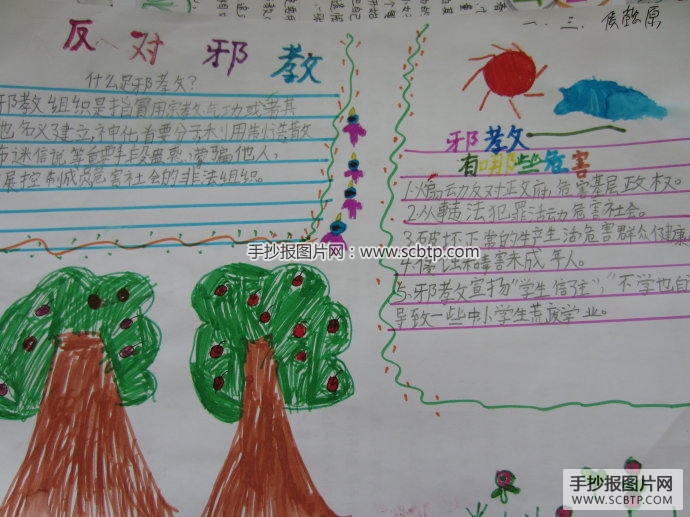 一.三. 侯懿原
反对邪教
什么是邪教?
邪教组织是指冒用宗教气功或者其
他名义建立,神化首要分子利用制造散
布迷信说等要手段蛊惑,蒙骗他人,
展控制成员危害社会的非法组织。
邪教
有哪些危害
1.煽动反对正政府,危害基层政权。
2.从事违法犯罪活动危害社会。
3.破坏正常的生产生活危害群众健康
4.侵蚀和毒害未成年人。
5.邪教宣扬"学生信主","不学也自
导致一些中小学生荒废学业。
手抄报图片网:www.scbtp.com
手抄报图片网
WWW.SCBTP.COM